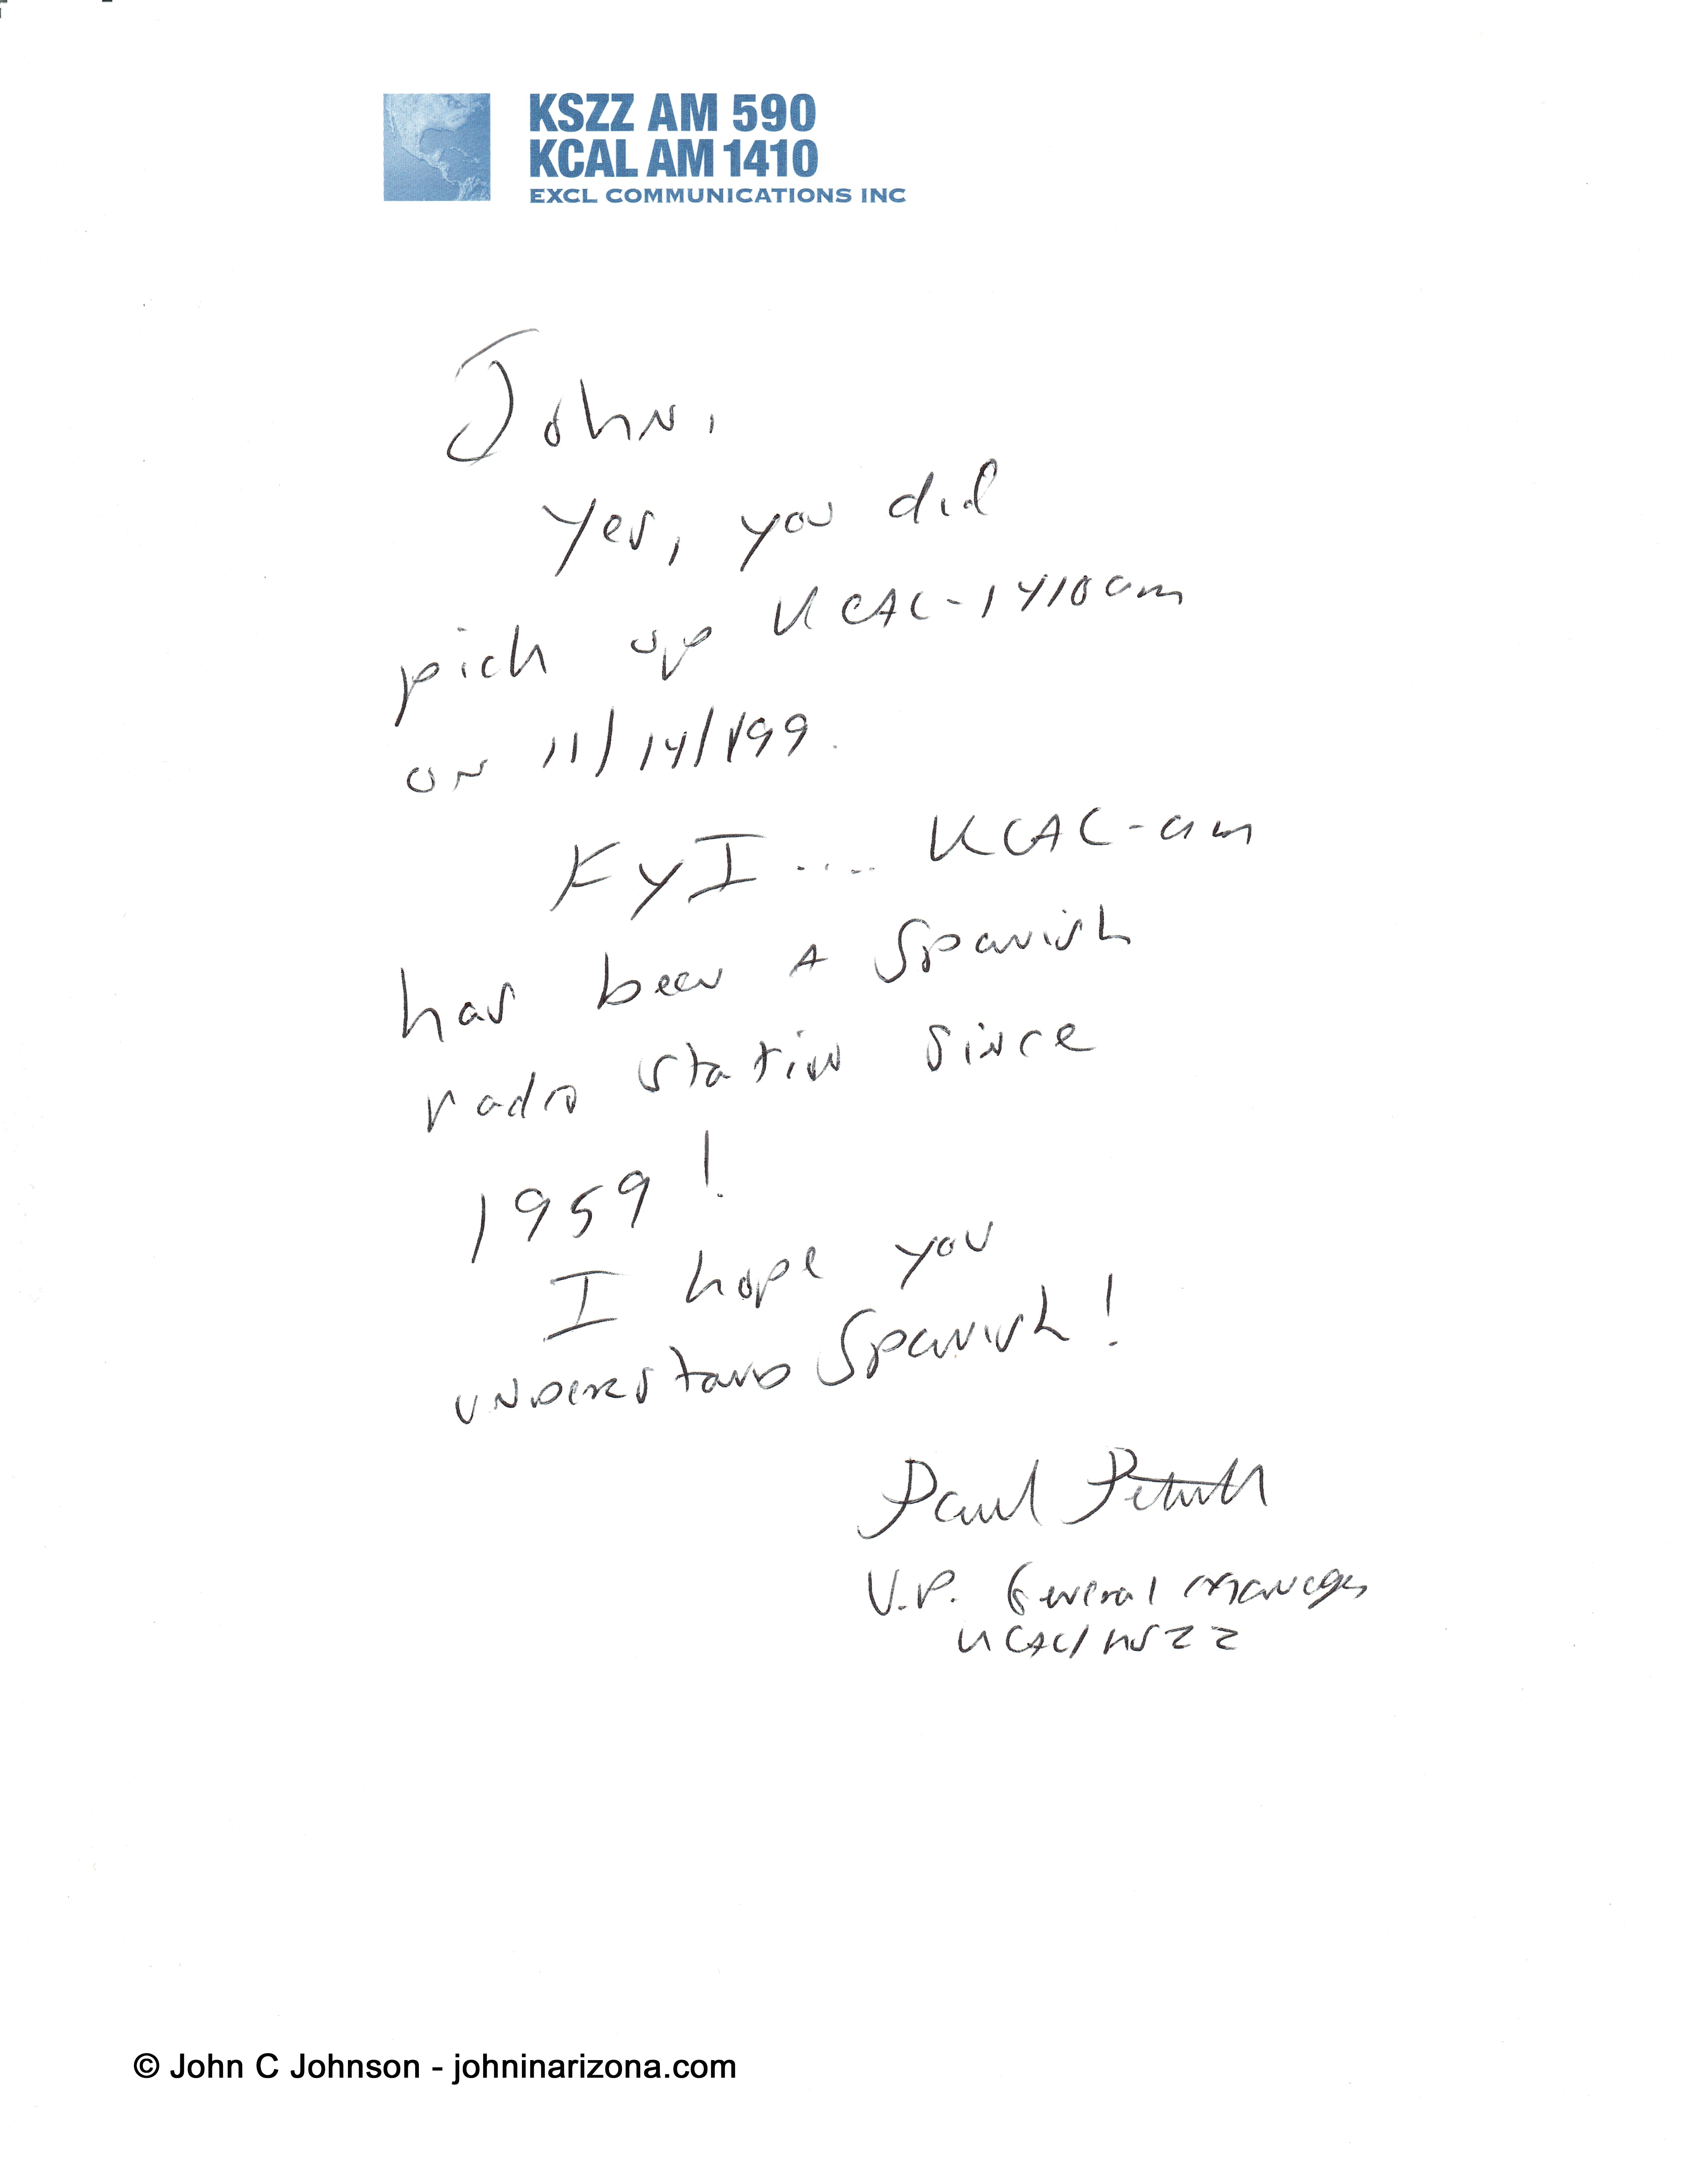 KSZZ AM 590
KCAL AM 1410
EXCL COMMUNICATIONS INC
John,
Yes, you did
pick up KCAL-1410am
on 11/14/199
FYI.... KCAL-am
has been a Spanish
radio station since
1959!
I hope you
understand Spanish!
Paul
V.P. General Manager
KCAL/KSZZ
© John C Johnson - johninarizona.com